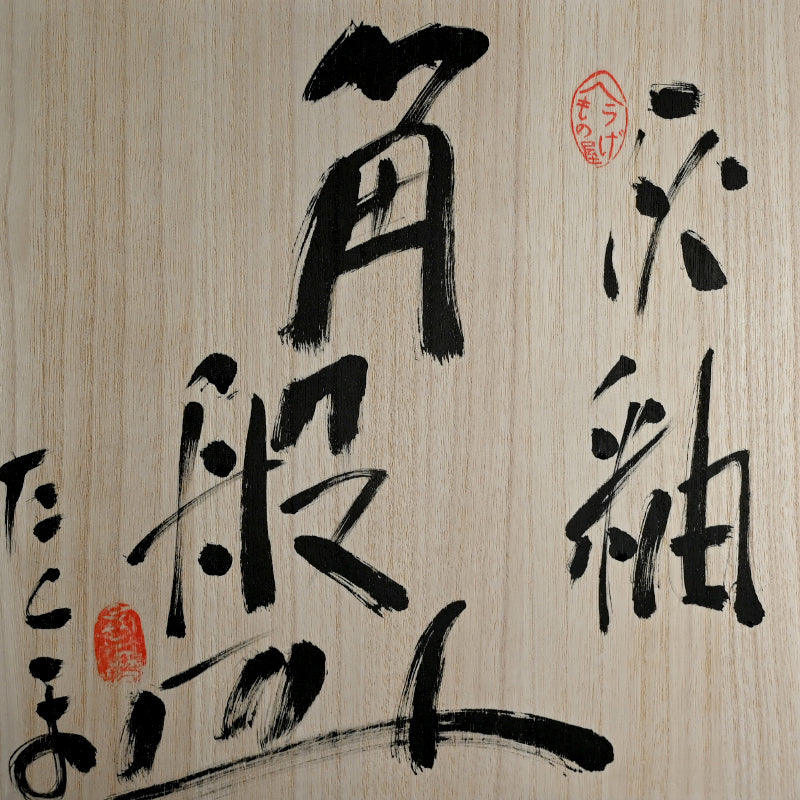 灰釉
へうげ
もの屋
角盤
たくま